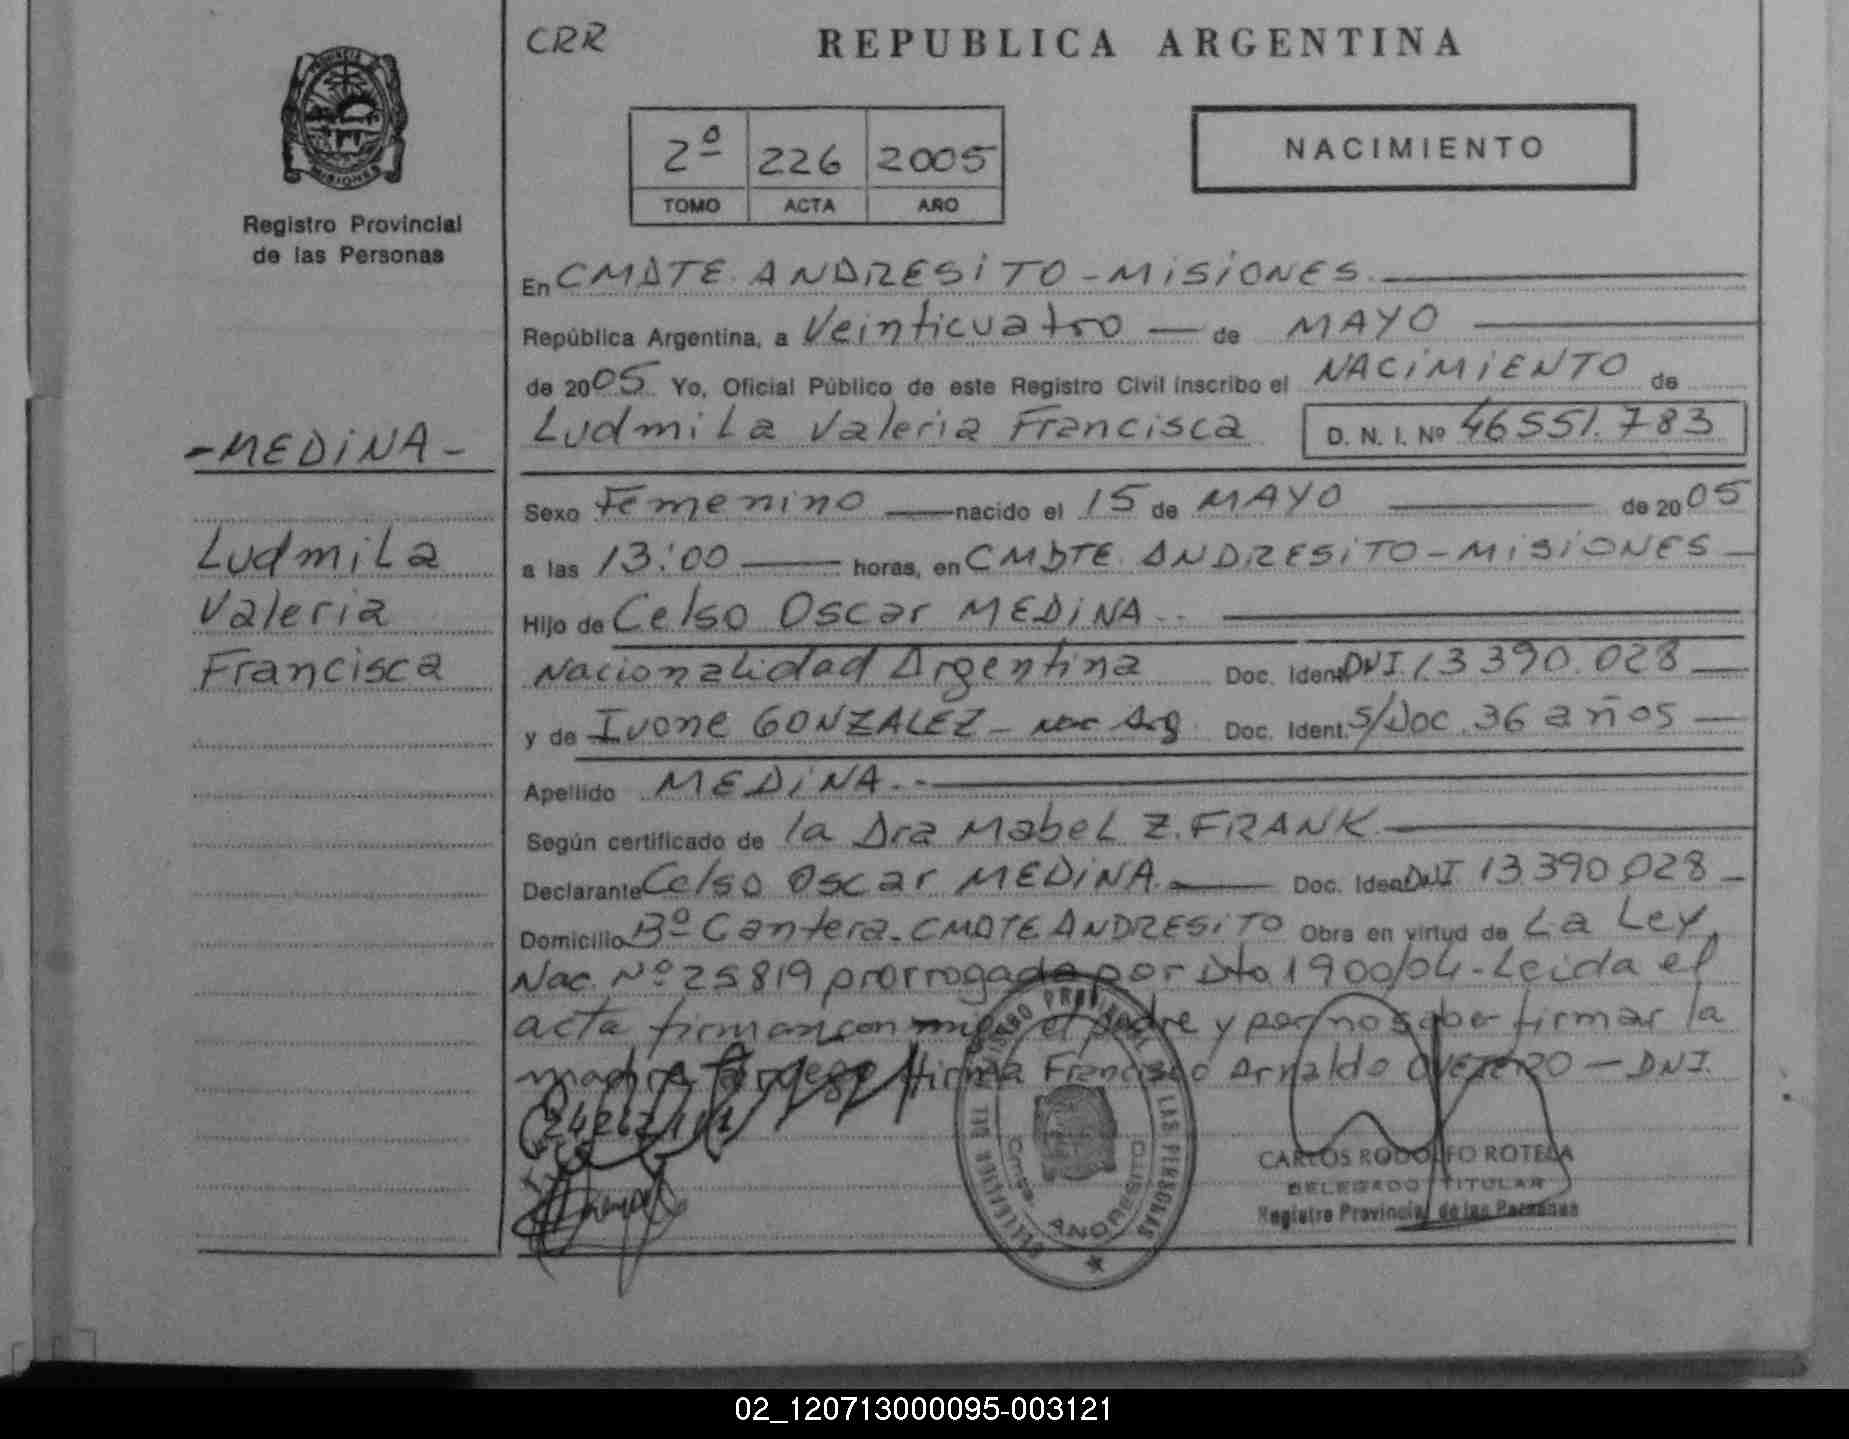 CRR
REPUBLICA ARGENTINA
PROVINCIA
MISIONES
Registro Provincial
de las Personas
2º 226 2005
TOMO ACTA AÑO
NACIMIENTO
En CMDTE. ANDRESITO - MISIONES.
República Argentina, a Veinticuatro — de MAYO
de 2005 Yo, Oficial Público de este Registro Civil inscribo el NACIMIENTO de
-MEDINA-
Ludmila Valeria Francisca D. N. I. Nº 46551.783
Ludmila
Valeria
Francisca
Sexo Femenino — nacido el 15 de MAYO — de 2005
a las 13:00 — horas, en CMDTE. ANDRESITO - MISIONES —
Hijo de Celso Oscar MEDINA.-
Nacionalidad Argentina Doc. Ident. DNI 13390.028 —
y de Ivone GONZALEZ - Nac Arg. Doc. Ident. S/Doc. 36 años —
Apellido MEDINA.-
Según certificado de la Dra Mabel Z. FRANK
Declarante Celso Oscar MEDINA. — Doc. Ident. DNI 13.390.028 -
Domicilio Bº Cantera. CMDTE ANDRESITO Obra en virtud de La Ley
Nac. Nº 25819 prorrogada por Dto 1900/04 - Leida el
acta firman con el padre y por no saber firmar la
madre firma Francisco Arnaldo - DNI.
REGISTRO PROVINCIAL DE LAS PERSONAS
Cmte. ANDRESITO
CARLOS RODOLFO ROTELA
DELEGADO TITULAR
Registro Provincial de las Personas
02_120713000095-003121